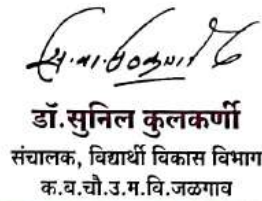 डॉ.सुनिल कुलकर्णी
संचालक, विद्यार्थी विकास विभाग
क.ब.चौ.उ.म.वि.जळगाव